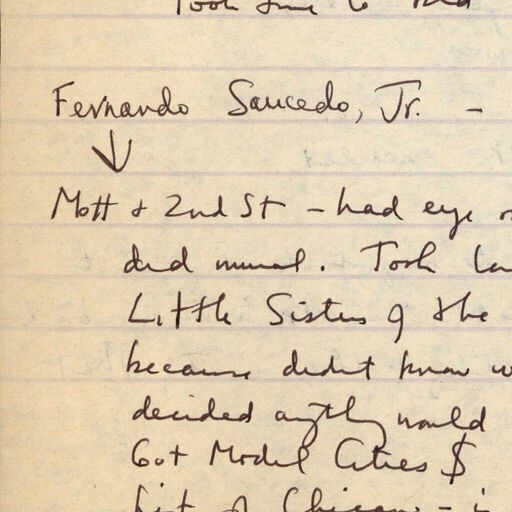 Took time to
Fernando Saucedo, Jr. -
Mott & 2nd St - had eye
did mural. Took
Little Sisters of the
because didnt know
decided anything would
Got Model Cities $
of Chicano - i